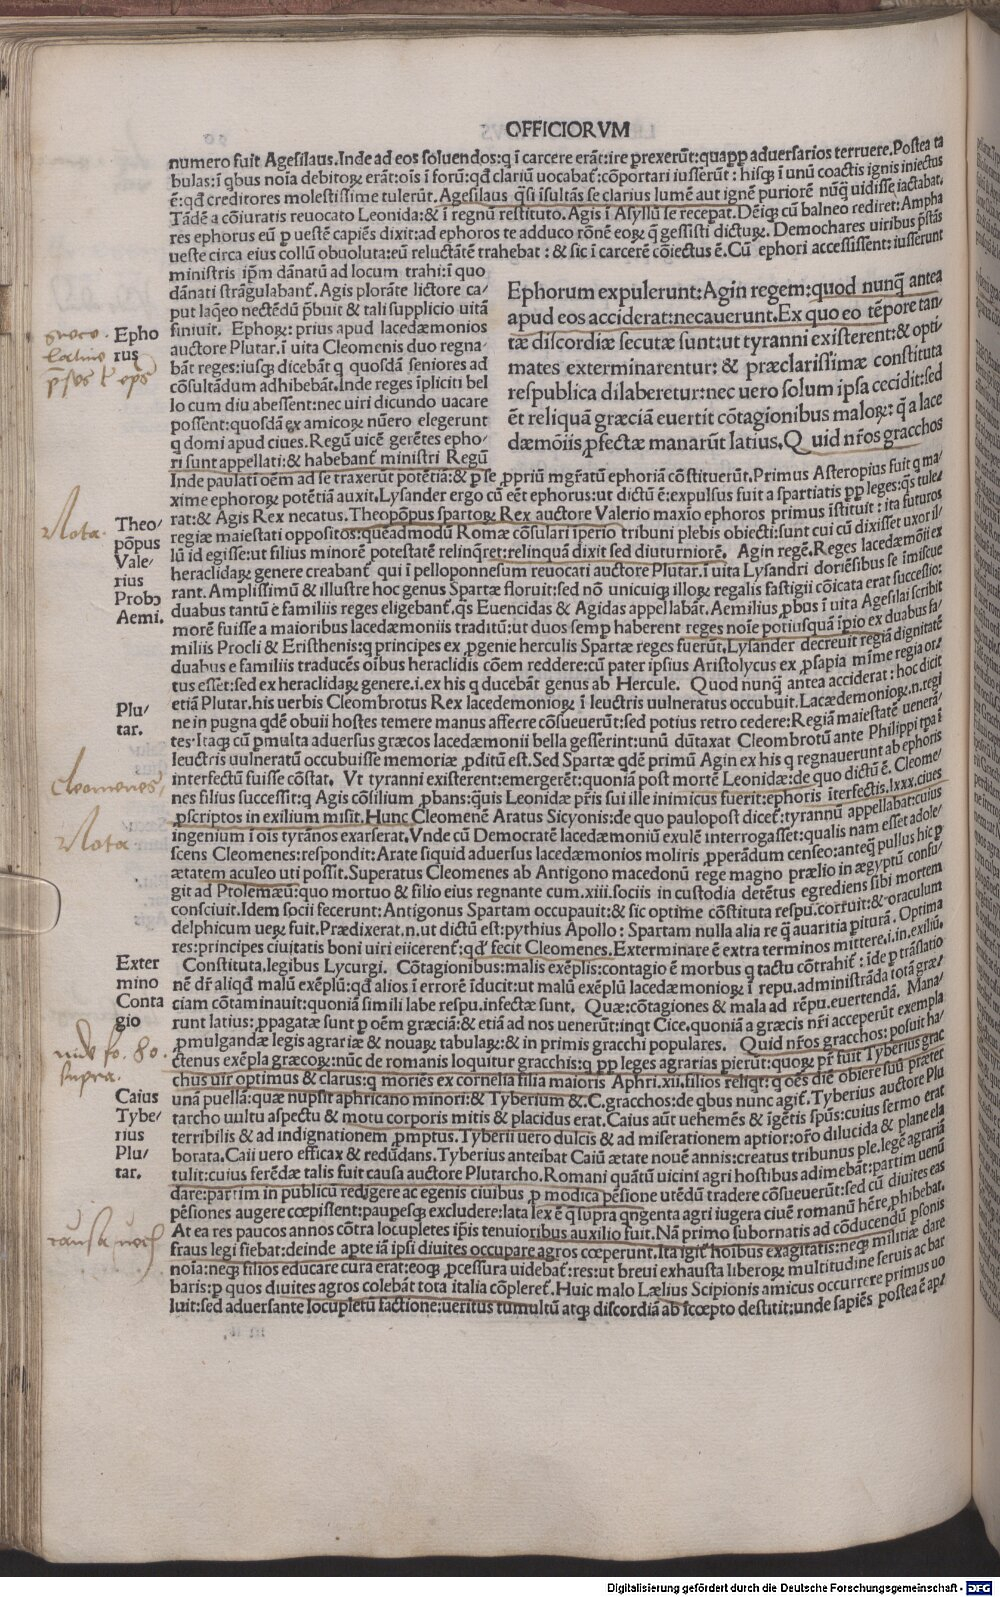 OFFICIORVM
numero fuit Agesilaus.Inde ad eos soluendos:q ī carcere erāt:ire ꝑrexerūt:quapꝓ aduersarios terruere.Postea ta
bulas:ī qbus noīa debitoꝝ erāt:oīs ī forū:qd clariū uocabāt:cōportari iusserūt:hisqꝫ ī unū coactis ignis iniectus
ē:qd creditores molestissime tulerūt.Agesilaus q̄si īsultās se clarius lumē aut ignē puriorē nūq̄ uidisse iactabat.
Tādē a cōiuratis reuocato Leonida:& ī regnū restituto.Agis ī Asyllū se recepat.Dēiqꝫ cū balneo rediret:Ampha
res ephorus eū ꝑ uestē capiēs dixit:ad ephoros te adduco rōnē eoꝝ q̄ gessisti dictuꝝ. Demochares uiribus p̄stās
ueste circa eius collū obuoluta:eū reluctātē trahebat:& sic ī carcerē cōiectus ē.Cū ephori accessissent:iusserunt
ministris ip̄m dānatū ad locum trahi:ī quo
dānati strāgulabanť.Agis plorāte lictore ca/
put laq̄eo nectēdū p̄buit & tali supplicio uitā
finiuit. Ephoꝝ: prius apud lacedæmonios
auctore Plutar.ī uita Cleomenis duo regna/
bāt reges:iusqꝫ dicebāt q quosdā seniores ad
cōsultādum adhibebāt.Inde reges īpliciti bel
lo cum diu abessent:nec uiri dicundo uacare
possent:quosdā ex amicoꝝ nūero elegerunt
q domi apud ciues.Regū uicē gerētes epho/
ri sunt appellati:& habebanť ministri Regū
Ephorum expulerunt:Agin regem:quod nunq̄ antea
apud eos acciderat:necauerunt.Ex quo eo tēpore tan/
tæ discordiæ secutæ sunt:ut tyranni existerent:& opti/
mates exterminarentur: & præclarissimæ constituta
respublica dilaberetur:nec uero solum ipsa cecidit:sed
ēt reliquā græciā euertit cōtagionibus maloꝝ:q̄ a lace
dæmōiis ꝓfectæ manarūt latius.Quid nr̄os gracchos
Inde paulati oēm ad se traxerūt potētiā:& ꝑ se ꝓpriū mgr̄atū ephoriā cōstituerūt.Primus Asteropius fuit q ma/
xime ephoroꝝ potētiā auxit.Lysander ergo cū eēt ephorus:ut dictū ē:expulsus fuit a spartiatis ꝓp leges:qs tule/
rat:& Agis Rex necatus.Theopōpus spartoꝝ Rex auctore Valerio maxio ephoros primus īstituit:ita futuros
regiæ maiestati oppositos:quēadmodū Romæ cōsulari īperio tribuni plebis obiecti:sunt cui cū dixisset uxor il/
lū id egisse:ut filius minorē potestatē relinq̄ret:relinquā dixit sed diuturniorē. Agin regē.Reges lacedæmōii ex
heraclidaꝝ genere creabanť qui ī pelloponnesum reuocati auctore Plutar.ī uita Lysandri doriēsibus se īmiscue
rant.Amplissimū & illustre hoc genus Spartæ floruit:sed nō unicuiqꝫ illoꝝ regalis fastigii cōicata erat successio:
duabus tantū e familiis reges eligebanť.qs Euencidas & Agidas appellabāt.Aemilius ꝓbus ī uita Agesilai scribit
morē fuisse a maioribus lacedæmoniis traditū:ut duos semꝑ haberent reges noīe potiusquā īpio ex duabus fa/
miliis Procli & Eristhenis:q principes ex ꝓgenie herculis Spartæ reges fuerūt.Lysander decreuit regiā dignitatē
duabus e familiis traducēs oībus heraclidis cōem reddere:cū pater ipsius Aristolycus ex ꝓsapia mīme regia or/
tus esset:sed ex heraclidaꝝ genere.i.ex his q ducebāt genus ab Hercule. Quod nunq̄ antea acciderat:hoc dicit
etiā Plutar.his uerbis Cleombrotus Rex lacedemonioꝝ ī leuctris uulneratus occubuit.Lacædemonioꝝ.n.regi
ne in pugna qdē obuii hostes temere manus afferre cōsueuerūt:sed potius retro cedere:Regiā maiestatē uenerā/
tes.Itaqꝫ cū ꝑmulta aduersus græcos lacedæmonii bella gesserint:unū dūtaxat Cleombrotū ante Philippi tꝑa ī
leuctris uulneratū occubuisse memoriæ ꝓditū est.Sed Spartæ qdē primū Agin ex his q regnauerunt ab ephoris
interfectū fuisse cōstat. Vt tyranni existerent:emergerēt:quoniā post mortē Leonidæ:de quo dictū ē. Cleome/
nes filius successit:q Agis cōsilium ꝓbans:q̄uis Leonidæ pr̄is sui ille inimicus fuerit:ephoris īterfectis.lxxx.ciues
ꝓscriptos in exilium misit.Hunc Cleomenē Aratus Sicyonis:de quo paulopost diceť:tyrannū appellabat:cuius
ingenium ī oīs tyrānos exarserat.Vnde cū Democratē lacedæmoniū exulē interrogasset:qualis nam esset adole/
scens Cleomenes:respondit:Arate siquid aduersus lacedæmonios moliris ꝓperādum censeo:anteq̄ pullus hic ꝑ
ætatem aculeo uti possit.Superatus Cleomenes ab Antigono macedonū rege magno prælio in ægyptū confu/
git ad Ptolemæū:quo mortuo & filio eius regnante cum.xiii.sociis in custodia detētus egrediens sibi mortem
consciuit.Idem socii fecerunt:Antigonus Spartam occupauit:& sic optime cōstituta respu.corruit:& oraculum
delphicum ueꝝ fuit.Prædixerat.n.ut dictū est:pythius Apollo: Spartam nulla alia re q̄ auaritia ꝑiturā. Optima
res:principes ciuitatis boni uiri eiicerenť:qd fecit Cleomenes.Exterminare ē extra terminos mittere.i.in.exiliū.
Constituta.legibus Lycurgi. Cōtagionibus:malis exēplis:contagio ē morbus q tactu cōtrahiť: īde ꝑ trāslatio
nē dr̄ aliqd malū exēplū:qd alios ī errorē īducit:ut malū exēplū lacedæmonioꝝ ī repu.administrāda totā græ/
ciam cōtaminauit:quoniā simili labe respu.infectæ sunt. Quæ:cōtagiones & mala ad rēpu.euertendā. Mana/
runt latius:ꝓpagatæ sunt ꝑ oēm græciā:& etiā ad nos uenerūt:inqt Cice.quoniā a græcis nr̄i acceperūt exempla
ꝓmulgandæ legis agrariæ & nouaꝝ tabulaꝝ:& in primis gracchi populares. Quid nr̄os gracchos:posuit ha/
ctenus exēpla græcoꝝ:nūc de romanis loquitur gracchis:q ꝓp leges agrarias ꝑierūt:quoꝝ pr̄ fuit Tyberius grac
chus uir optimus & clarus:q moriēs ex cornelia filia maioris Aphri.xii.filios reliqt:q oēs diē obiere suū præter
unā puellā:quæ nupsit aphricano minori:& Tyberium &.C.gracchos:de qbus nunc agiť.Tyberius auctore Plu
tarcho uultu aspectu & motu corporis mitis & placidus erat.Caius aūt uehemēs & īgētis spūs:cuius sermo erat
terribilis & ad indignationem ꝓmptus.Tyberii uero dulcis & ad miserationem aptior:or̄o dilucida & plane ela
borata.Caii uero efficax & redūdans.Tyberius anteibat Caiū ætate nouē annis:creatus tribunus ple.legē agrariā
tulit:cuius ferēdæ talis fuit causa auctore Plutarcho.Romani quātū uicini agri hostibus adimebāt:partim uenū
dare:partim in publicū redigere ac egenis ciuibus ꝑ modica pēsione utēdū tradere cōsueuerūt:sed cū diuites eas
pēsiones augere cœpissent:pauꝑesqꝫ excludere:lata lex ē q̄ supra qngenta agri iugera ciuē romanū hr̄e ꝓhibebat.
At ea res paucos annos cōtra locupletes īpīs tenuioribus auxilio fuit.Nā primo subornatis ad cōducendū ꝑsonis
fraus legi fiebat:deinde apte iā ipsi diuites occupare agros cœperunt.Ita igiť hoībus exagitatis:neqꝫ militiæ dare
noīa:neqꝫ filios educare cura erat:eoqꝫ ꝓcessura uidebať:res:ut breui exhausta liberoꝝ multitudine seruis ac bar
baris:ꝑ quos diuites agros colebāt tota italia cōplereť.Huic malo Lælius Scipionis amicus occurrere primus uo
luit:sed aduersante locupletū factione:ueritus tumultū atqꝫ discordiā ab īcœpto destitit:unde sapiēs postea ē apꝑ/
Epho
rus
Theo/
pōpus
Vale/
rius
Probꝰ
Aemi.
Plu/
tar.
Exter
mino
Conta
gio
Caius
Tybe/
rius
Plu/
tar.
Nota
Cleomenes
Nota
supra.
Digitalisierung gefördert durch die Deutsche Forschungsgemeinschaft - DFG